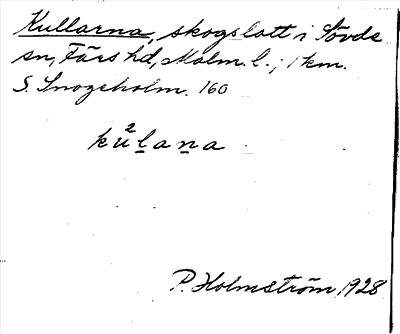 Kullarna, skogslott i Sövde
sn, Färs hd, Malm. l.; 1 km.
S. Snogeholm. 160
ků²l̲an̲a
P. Holmström 1928